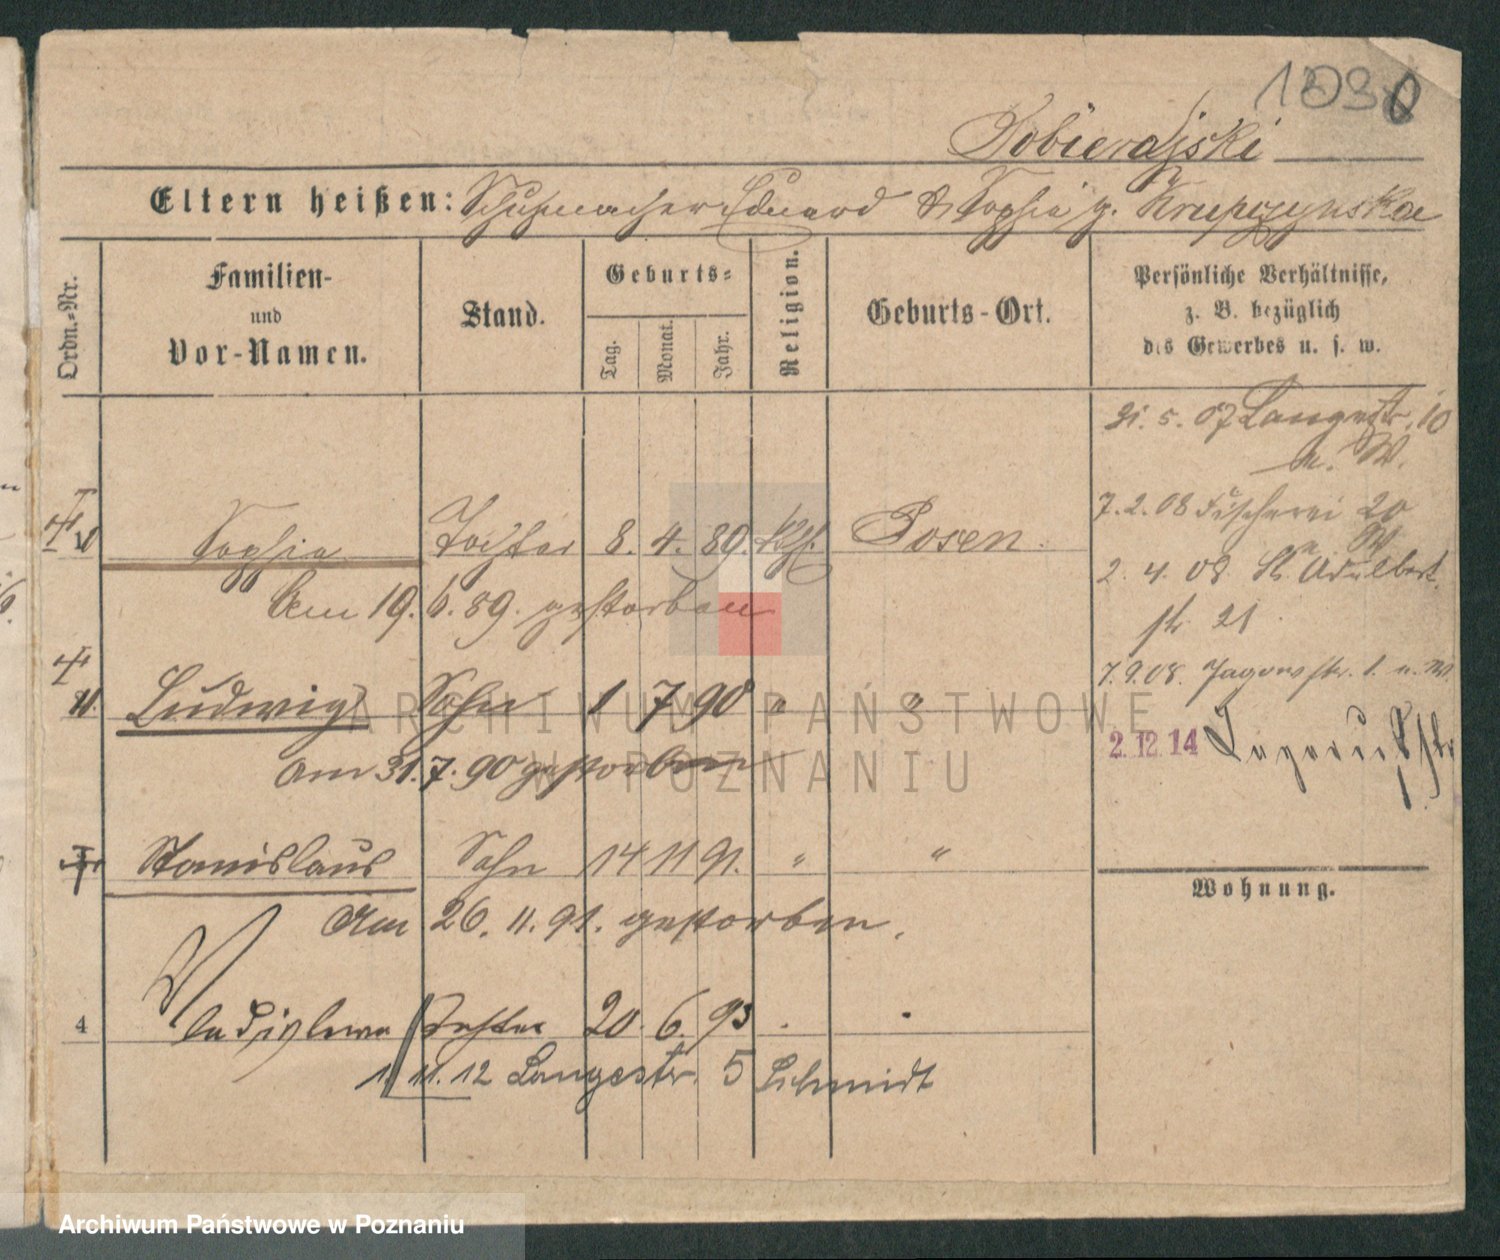 1030
Dobierajski
Eltern heißen: Schuhmacher Eduard & Sophia g. Krupczynska
Ordn.=Nr.
Familien-
und
Vor-Namen.
Stand.
Geburts=
Tag.
Monat.
Jahr.
Religion.
Geburts-Ort.
Persönliche Verhältnisse,
z. B. bezüglich
des Gewerbes u. s. w.
21. 5. 07 Langestr. 10
n. W.
7. 2. 08 Fischerei 20
W
2. 4. 08 St. Adalbert
str 21
7. 9. 08. Jagowstr. 1. n. W.
2. 12. 14
Sophia Tochter 8. 4. 89. kth. Posen.
Am 19. 6. 89. gestorben
Ludwig Sohn 1 7 90 " "
Am 31. 7. 90 gestorben
Stanislaus Sohn 14 11 91. " "
Am 26. 11. 91. gestorben.
4 Wladislawa Tochter 20. 6. 93 . .
1. 11. 12 Langestr. 5 Schmidt
Wohnung.
ARCHIWUM PAŃSTWOWE
W POZNANIU
Archiwum Państwowe w Poznaniu